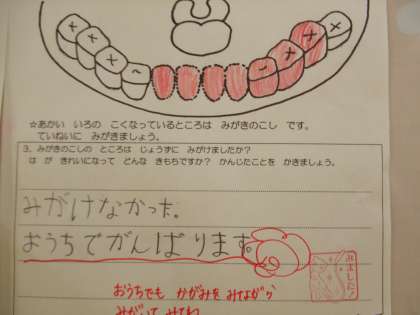 ☆あかい いろの こくなっているところは みがきのこし です。
ていねいに みがきましょう。
3. みがきのこしの ところは じょうずに みがけましたか?
は が きれいになって どんな きもちですか? かんじたことを かきましょう。
みがけなかった。
おうちでがんばります。
みました!
おうちでも かがみを みながら
みがいて みてね